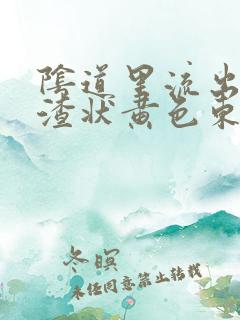 陰道里流出
渣状黄色東
冬暝
未经同意禁止转载